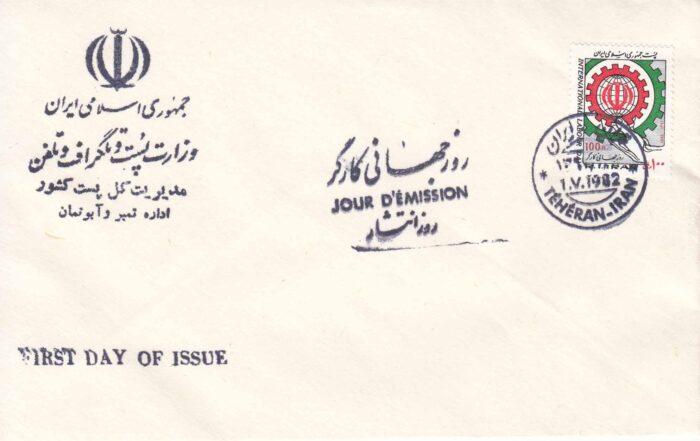 جمهوری اسلامی ایران
وزارت پست و تلگراف و تلفن
مدیریت کل پست کشور
اداره تمبر و آبونمان
روز جهانی کارگر
JOUR D'ÉMISSION
روز انتشار
پست جمهوری اسلامی ایران
INTERNATIONAL LABOUR
100
روز جهانی کارگر
۱۰۰
ایران
1.V.1982
TÉHÉRAN-IRAN
FIRST DAY OF ISSUE